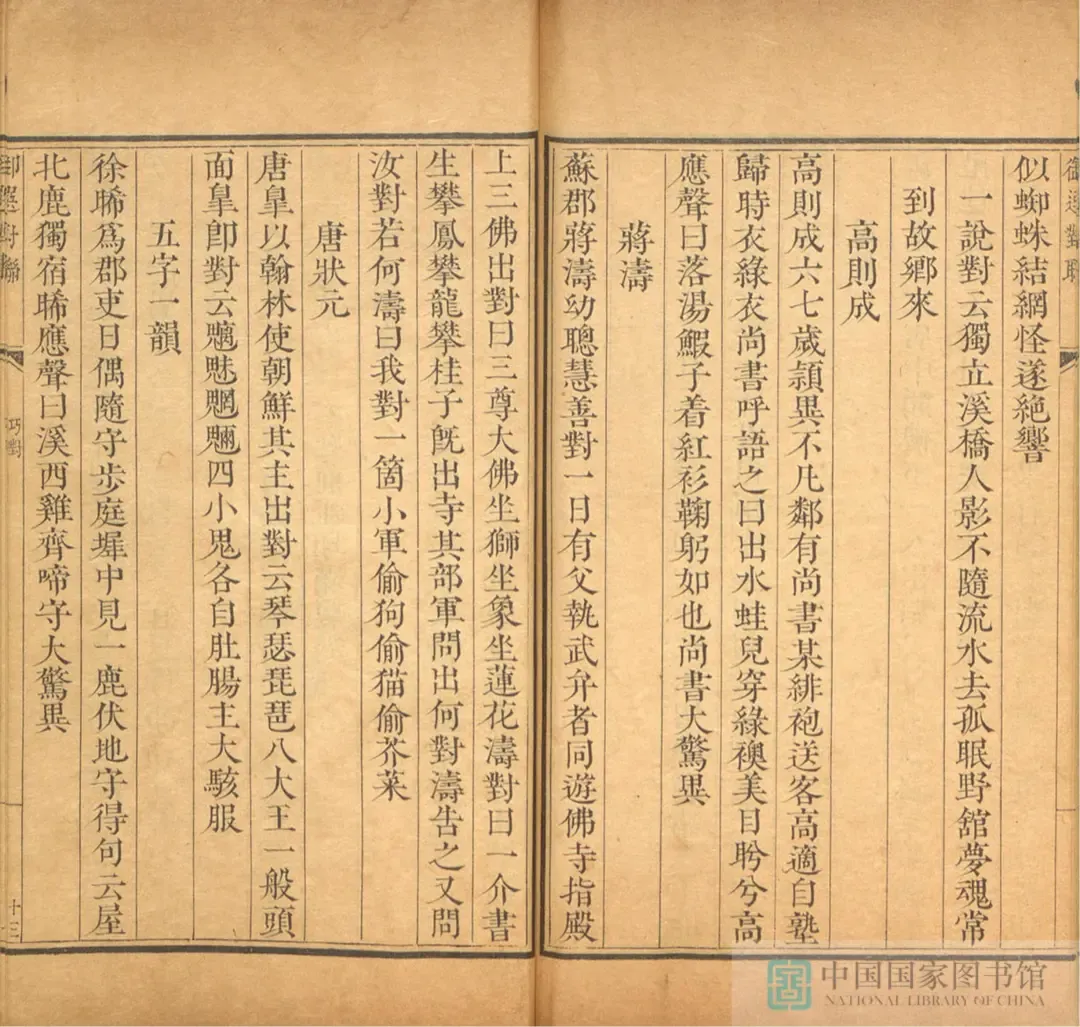 似蜘蛛結網怪遂絶響
一說對云獨立溪橋人影不隨流水去孤眠野舘夢魂常
到故鄉來
高則成
高則成六七歲頴異不凡鄰有尚書某緋袍送客高適自塾
歸時衣綠衣尚書呼語之曰出水蛙兒穿綠襖美目盻兮高
應聲曰落湯鰕子着紅衫鞠躬如也尚書大驚異
蔣濤
蘇郡蔣濤幼聰慧善對一日有父執武弁者同遊佛寺指殿
上三佛出對曰三尊大佛坐獅坐象坐蓮花濤對曰一介書
生攀鳳攀龍攀桂子旣出寺其部軍問出何對濤告之又問
汝對若何濤曰我對一箇小軍偷狗偷猫偷芥菜
唐狀元
唐皐以翰林使朝鮮其主出對云琴瑟琵琶八大王一般頭
面皐卽對云魑魅魍魎四小鬼各自肚腸主大駭服
五字一韻
徐晞爲郡吏日偶隨守步庭墀中見一鹿伏地守得句云屋
北鹿獨宿晞應聲曰溪西雞齊啼守大驚異
巧對
十三
中国国家图书馆
NATIONAL LIBRARY OF CHINA